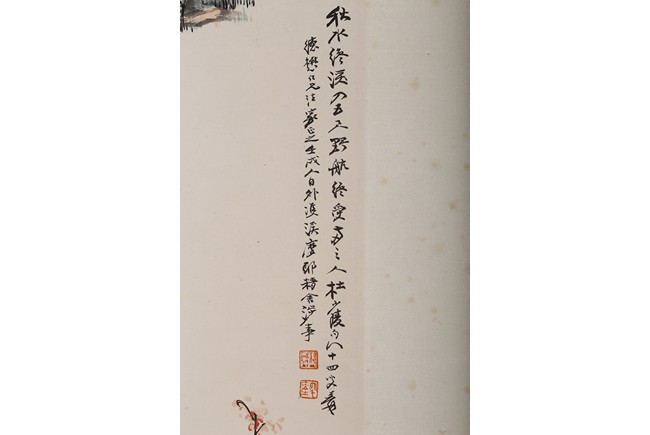 秋水纔深四五尺野航受兩三人杜少陵句八十四叟爰
德懋仁兄法家正之壬戌人日外雙溪摩耶精舍涉事